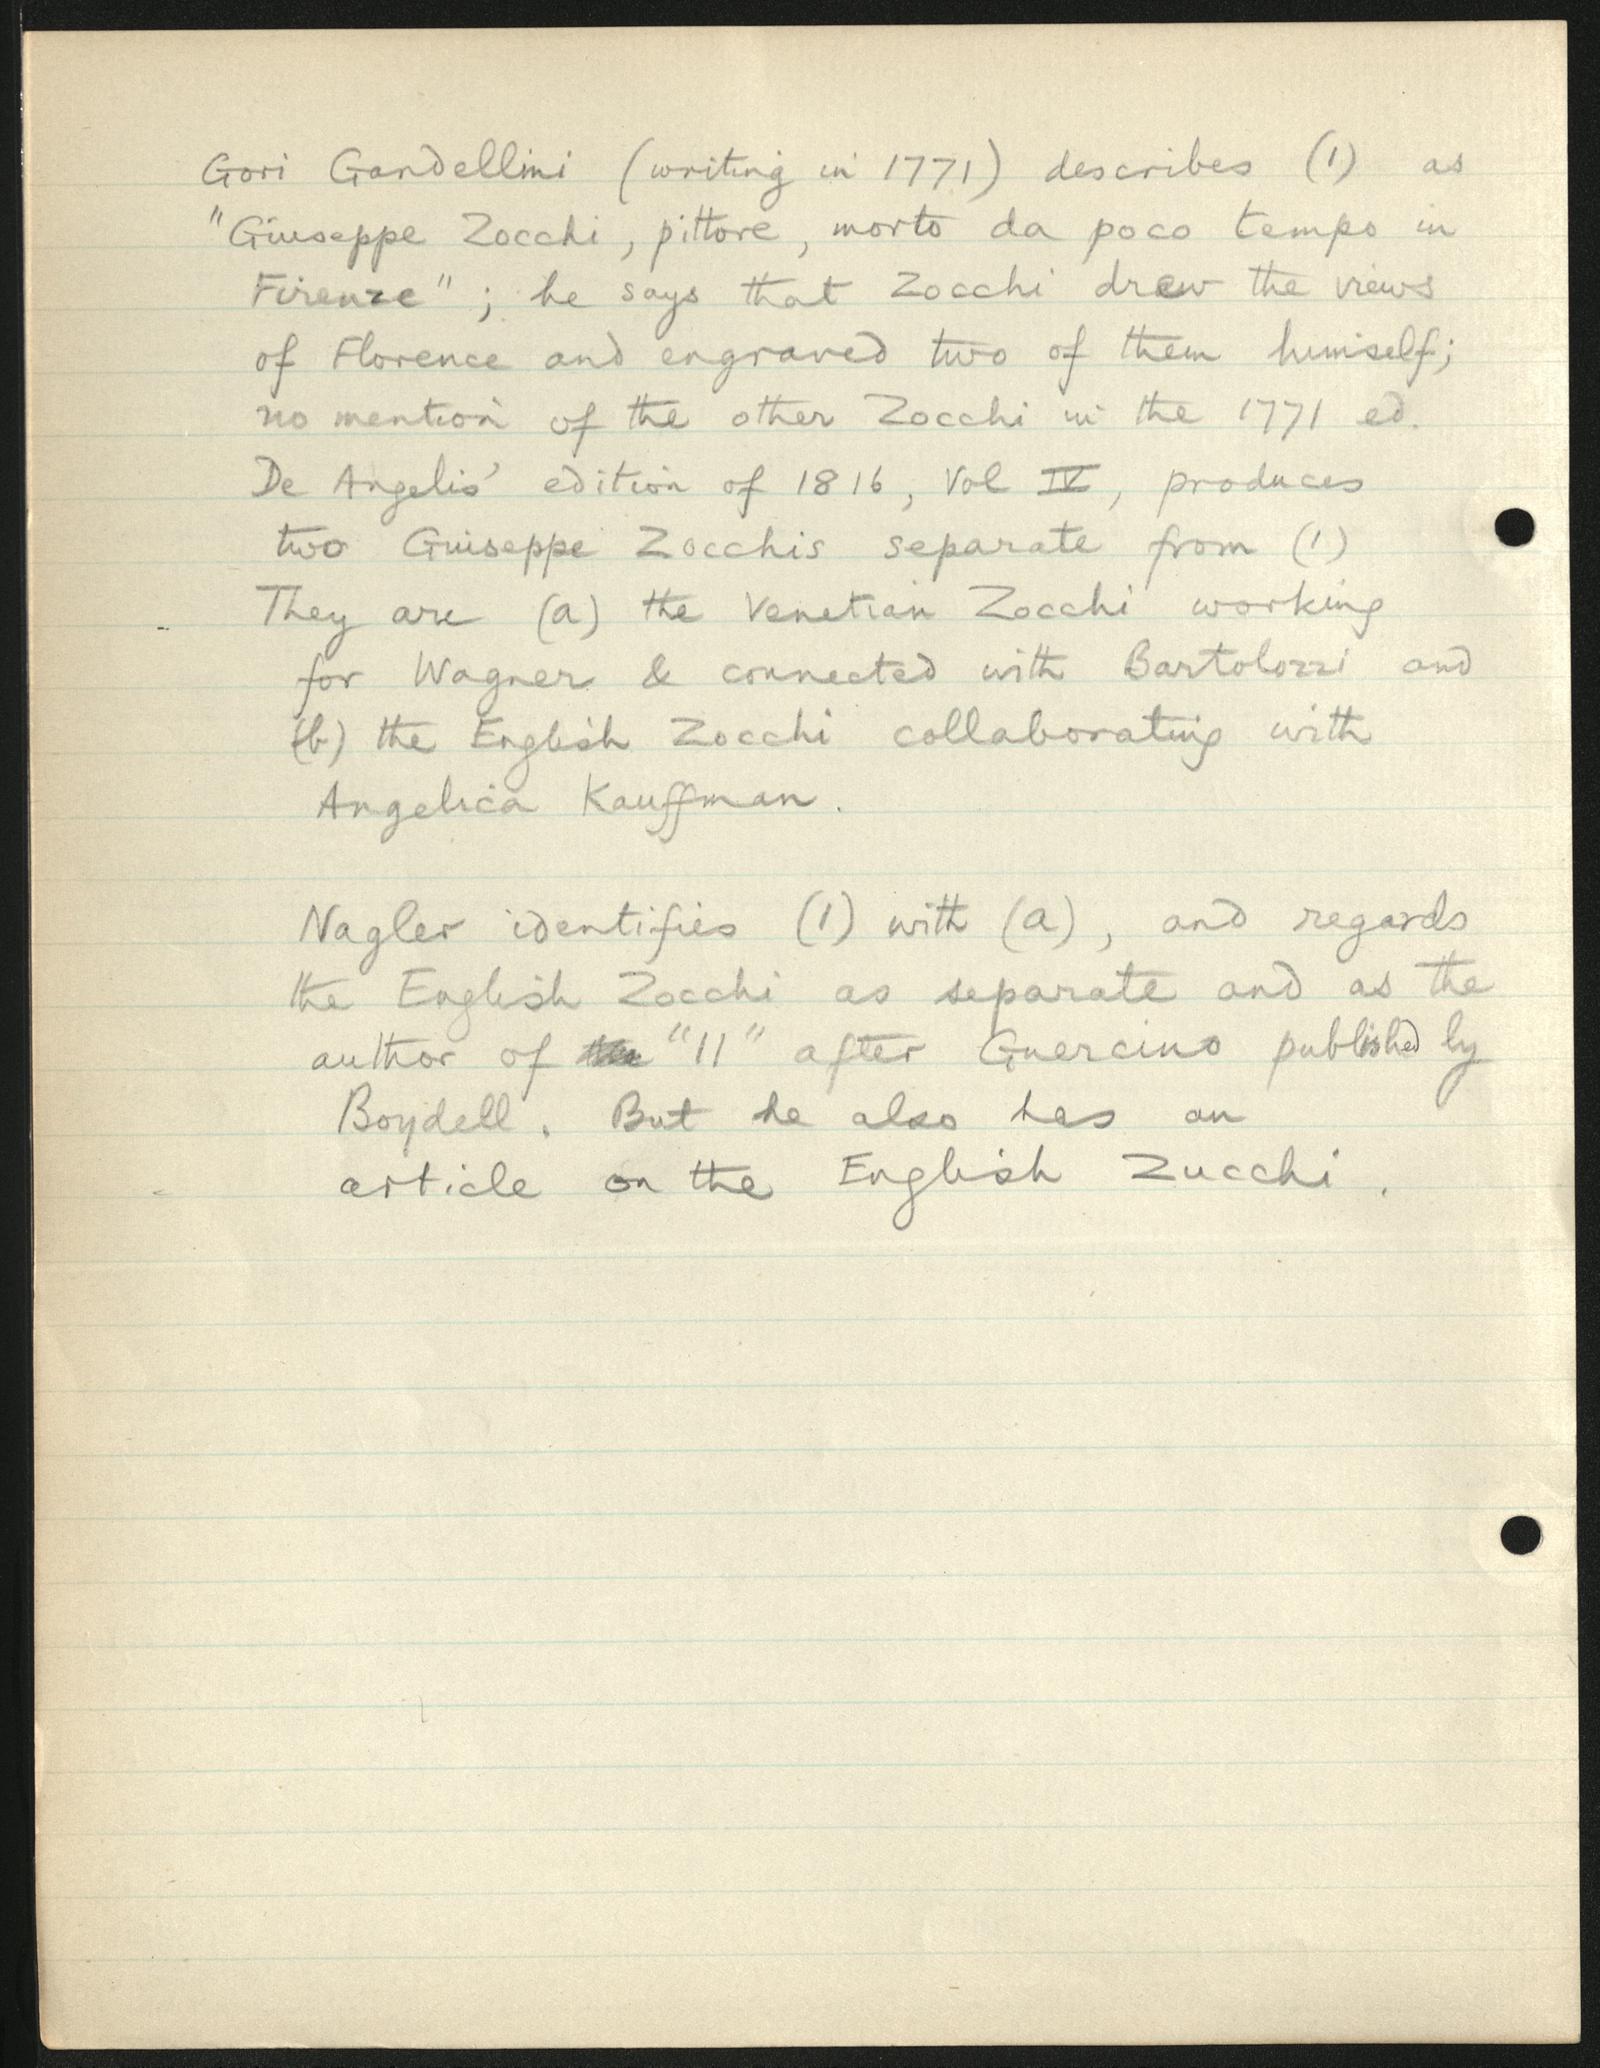 Gori Gandellini (writing in 1771) describes (1) as
"Giuseppe Zocchi, pittore, morto da poco tempo in
Firenze"; he says that Zocchi drew the views
of Florence and engraved two of them himself;
no mention of the other Zocchi in the 1771 ed.
De Angelis' edition of 1816, Vol IV, produces
two Guiseppe Zocchis separate from (1)
They are (a) the Venetian Zocchi working
for Wagner & connected with Bartolozzi and
(b) the English Zocchi collaborating with
Angelica Kauffman.
Nagler identifies (1) with (a), and regards
the English Zocchi as separate and as the
author of "11" after Guercino published by
Boydell. But he also has an
article on the English Zucchi.